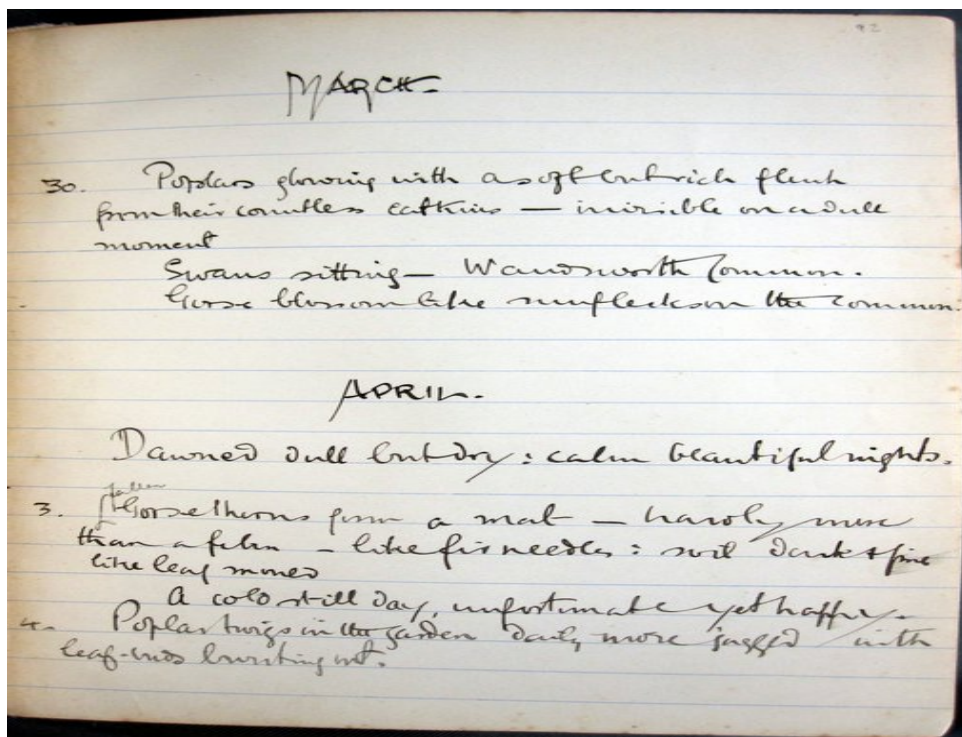 92
MARCH.
30. Poplars glowing with a soft but rich flush
from their countless catkins — invisible on a dull
moment
Swans sitting — Wandsworth Common.
Gorse blossom like sunflecks on the common.
APRIL.
Dawned dull but dry: calm beautiful nights.
fallen
3. Gorse thorns form a mat — hardly more
than a film — like fir needles: soil dark & fine
like leaf mould
A cold still day, unfortunate yet happy.
4. Poplar twigs in the garden daily more jagged with
leaf-buds bursting out.